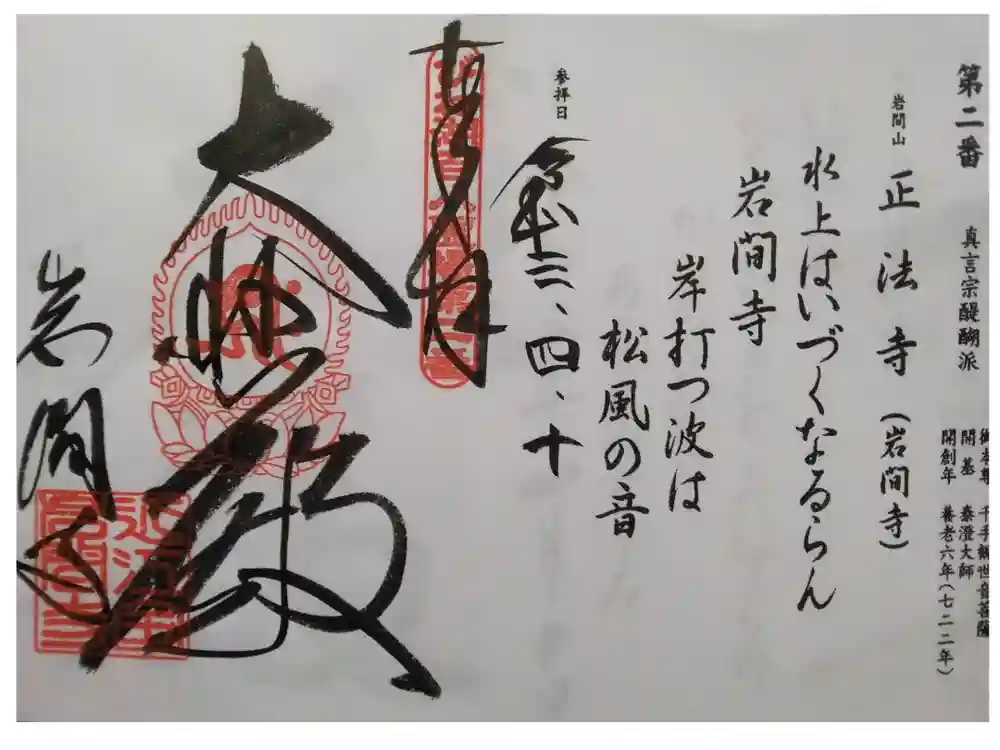 第二番 真言宗醍醐派
御本尊 千手観世音菩薩
開基 泰澄大師
開創年 養老六年(七二二年)
岩間山 正法寺(岩間寺)
水上はいづくなるらん
岩間寺
岸打つ波は
松風の音
参拝日
令和三、四、十
奉拝
大悲殿
岩間寺